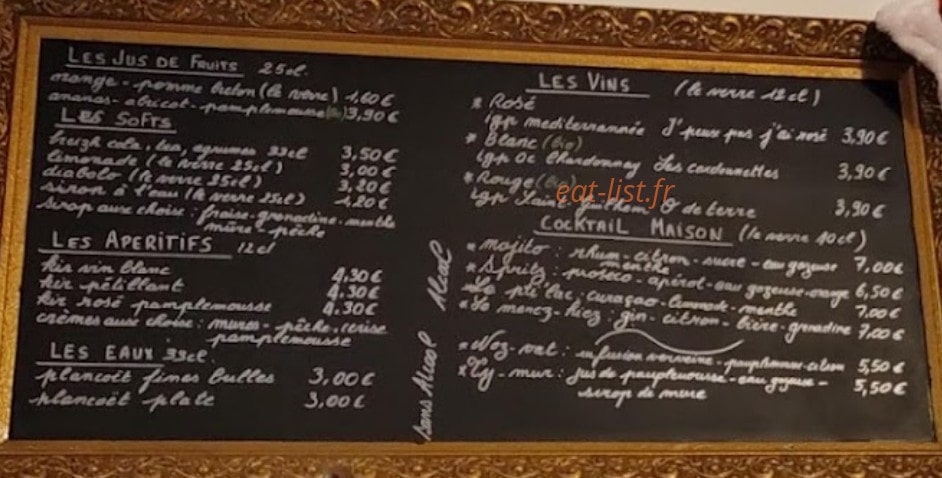 LES JUS DE FRUITS 25cl.
orange - pomme breton (le verre) 1,60€
ananas - abricot - pamplemousse 3,90€
LES SOFTS
breizh cola, tea, agrumes 33cl 3,50€
limonade (le verre 25cl) 3,00€
diabolo (le verre 25cl) 3,20€
siron à l'eau (le verre 25cl) 1,20€
sirop aux choise: fraise - grenadine - menthe
mûre - pêche
LES APERITIFS 12cl
kir vin blanc 4,30€
kir pétillant 4.30€
kir rosé pamplemousse 4.30€
crèmes aux choise: mures - pêche, cerise
pamplemousse
LES EAUX 33cl.
plancoët fines bulles 3,00€
plancoët plate 3,00€
LES VINS (le verre 12cl)
* Rosé
igp mediterrannée J'peux pas j'ai rosé 3,90€
* Blanc (bio)
igp Oc Chardonnay Les cardounettes 3,90€
* Rouge (bio)
igp O de terre 3,90€
COCKTAIL MAISON (le verre 10cl)
Alcool
* mojito: rhum - citron - sucre - eau gazeuse 7,00€
menthe
* Spritz: proseco - apérol - eau gazeuse - orange 6,50€
* Le pti'lac: curaçao - limonade - menthe 7,00€
* Le menez-hiez: gin - citron - bière - grenadine 7,00€
Sans Alcool
* Noz-vat: infusion verveine - pamplemousse - citron 5,50€
* Ty-mur: jus de pamplemousse - eau gazeuse - 5,50€
sirop de mure
eat-list.fr